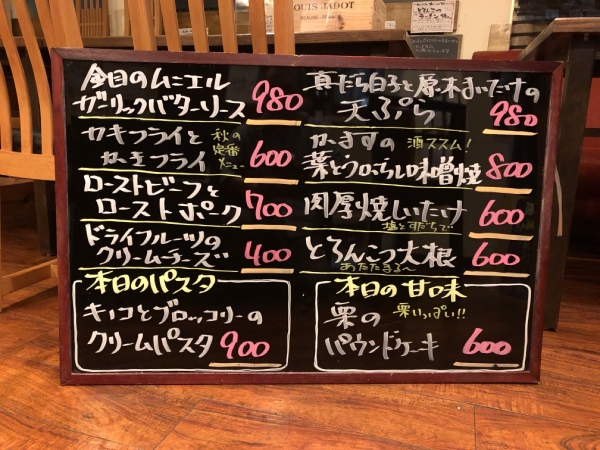 LOUIS JADOT
金目のムニエル
ガーリックバターソース 980
カキフライと
かきフライ 600
秋の
定番
メニュー
ローストビーフと
ローストポーク 700
ドライフルーツの
クリームチーズ 400
本日のパスタ
キノコとブロッコリーの
クリームパスタ 900
真だら白子と原木まいたけの
天ぷら 980
かますの 酒ススム!
味噌焼 800
肉厚焼しいたけ 600
塩とすだちで
とろんこつ大根 600
あたたまる〜
本日の甘味
栗の 栗いっぱい!!
パウンドケーキ 600